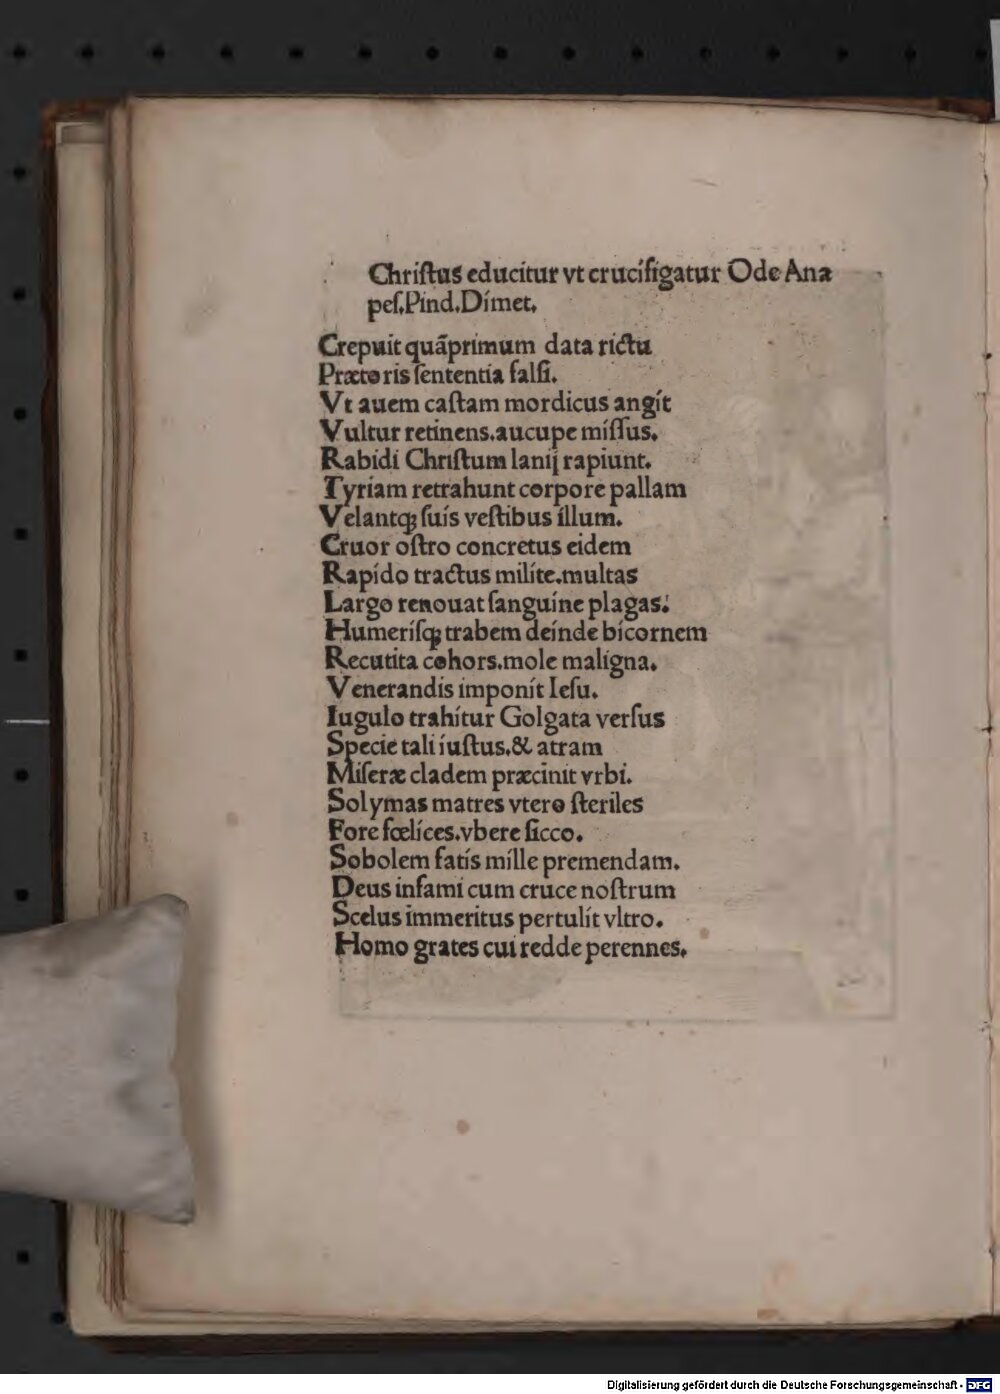 Chriſtus educitur vt crucifigatur Ode Ana
peſ.Pind.Dimet.
Crepuit quãprimum data rictu
Prætoris ſententia falſi.
Vt auem caſtam mordicus angit
Vultur retinens.aucupe miſſus.
Rabidi Chriſtum lanij rapiunt.
Tyriam retrahunt corpore pallam
Velantqꝫ ſuis veſtibus illum.
Cruor oſtro concretus eidem
Rapido tractus milite.multas
Largo renouat ſanguine plagas.
Humeriſqꝫ trabem deinde bicornem
Recutita cohors.mole maligna.
Venerandis imponit Ieſu.
Iugulo trahitur Golgata verſus
Specie tali iuſtus.& atram
Miſeræ cladem præcinit vrbi.
Solymas matres vtero ſteriles
Fore fœlices.vbere ſicco.
Sobolem fatis mille premendam.
Deus infami cum cruce noſtrum
Scelus immeritus pertulit vltro.
Homo grates cui redde perennes.
Digitalisierung gefördert durch die Deutsche Forschungsgemeinschaft - DFG